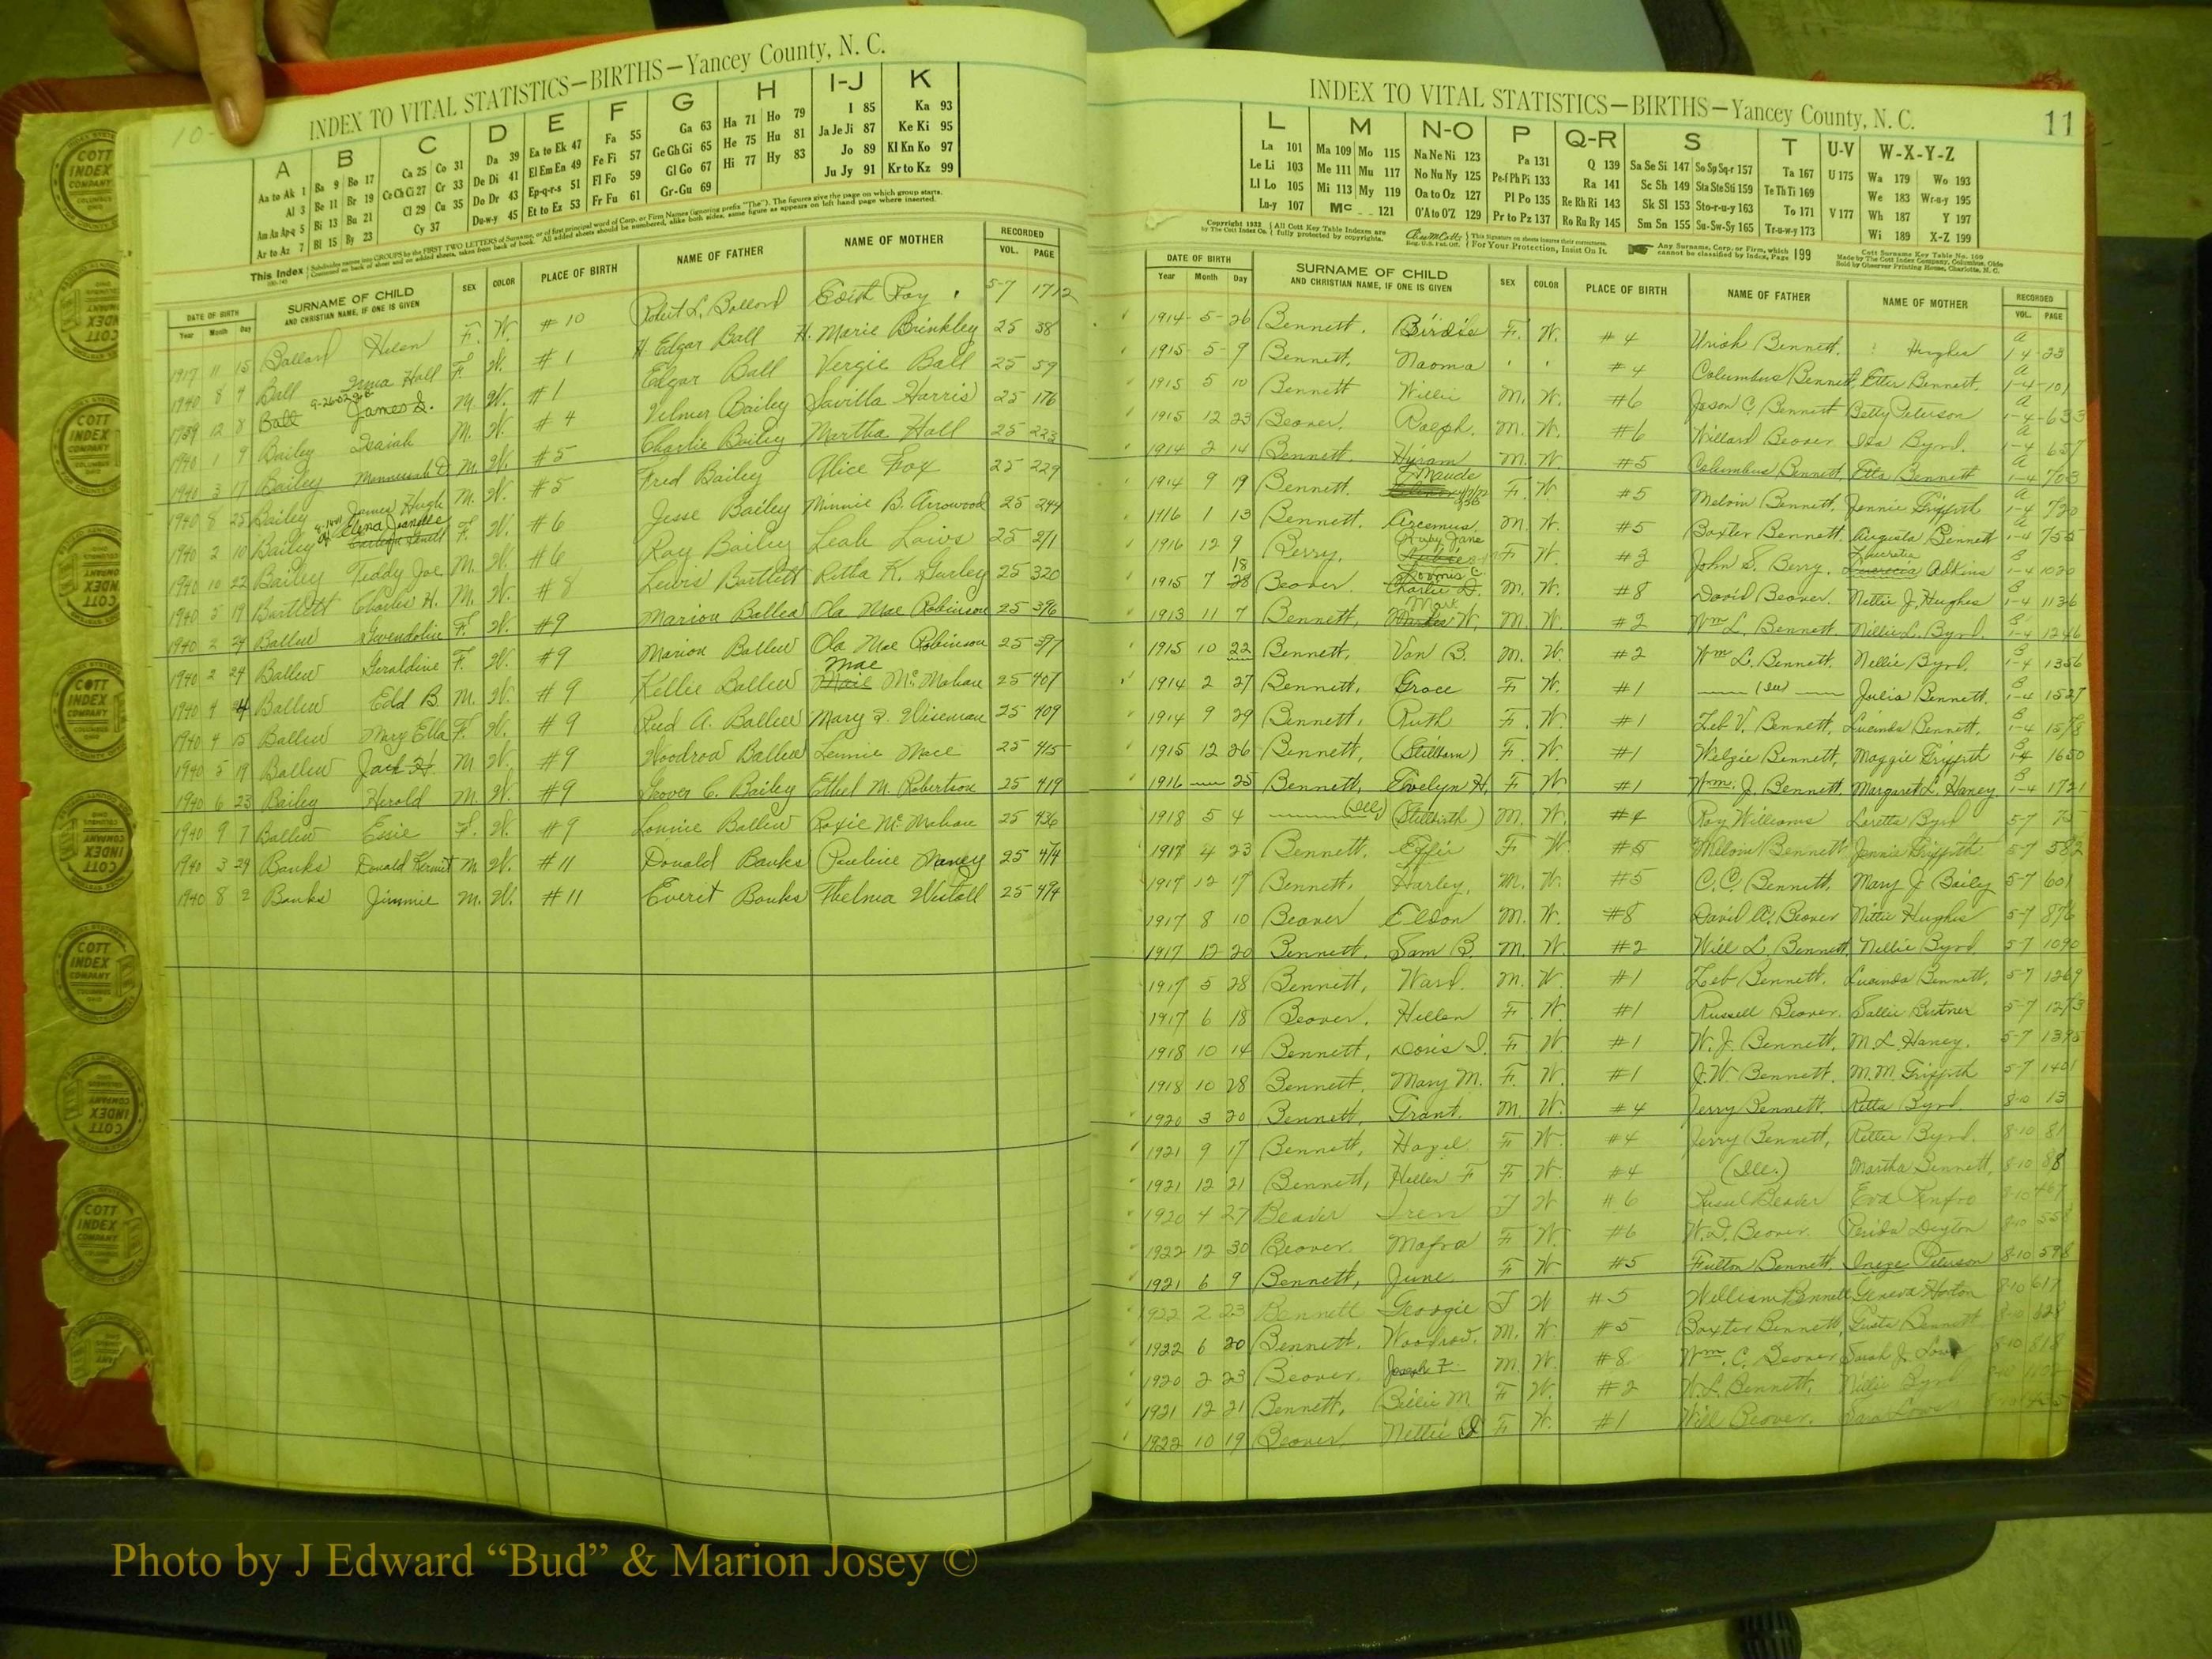 INDEX TO VITAL STATISTICS—BIRTHS—Yancey County, N. C.
A B C D E F G H I-J K
Aa to Ak 1 Ba 9 Bo 17 Ca 25 Co 31 Da 39 Ea to Ek 47 Fa 55 Ga 63 Ha 71 Ho 79 I 85 Ka 93
Al 3 Be 11 Br 19 Ce Ch Ci 27 Cr 33 De Di 41 El Em En 49 Fe Fi 57 Ge Gh Gi 65 He 75 Hu 81 Ja Je Ji 87 Ke Ki 95
Am An Ap-q 5 Bi 13 Bu 21 Cl 29 Cu 35 Do Dr 43 Ep-q-r-s 51 Fl Fo 59 Gl Go 67 Hi 77 Hy 83 Jo 89 Kl Kn Ko 97
Ar to Az 7 Bl 15 By 23 Cy 37 Du-w-y 45 Et to Ez 53 Fr Fu 61 Gr-Gu 69 Ju Jy 91 Kr to Kz 99
This Index
DATE OF BIRTH SURNAME OF CHILD SEX COLOR PLACE OF BIRTH NAME OF FATHER NAME OF MOTHER RECORDED
Year Month Day AND CHRISTIAN NAME, IF ONE IS GIVEN VOL. PAGE
1917 11 15 Ballard Helen F. W. #10 Robert L. Ballard Edith Ray 5-7 1712
1940 8 4 Ball Irma Hall F W. #1 H. Edgar Ball H. Marie Brinkley 25 38
1939 12 8 Ball James S. M W. #1 Edgar Ball Vergie Ball 25 59
1940 1 9 Bailey Isaiah M. W. #4 Velmer Bailey Savilla Harris 25 176
1940 3 17 Bailey M. W. #5 Charlie Bailey Martha Hall 25 223
1940 8 25 Bailey James Hugh M. W. #5 Fred Bailey Alice Fox 25 229
1940 2 10 Bailey F. W. #6 Jesse Bailey Minnie B. Arrowood 25 244
1940 10 22 Bailey Teddy Joe M. W. #6 Roy Bailey Leah Laws 25 271
1940 5 19 Bartlett Charles H. M. W. #8 Lewis Bartlett Retha K. Gurley 25 320
1940 2 24 Ballew Gwendolin F. W. #9 Marion Ballew Ola Mae Robinson 25 396
1940 2 24 Ballew Geraldine F. W. #9 Marion Ballew Ola Mae Robinson 25 397
1940 4 Ballew Edd B. M. W. #9 Kellie Ballew Mae McMahan 25 407
1940 4 15 Ballew Mary Ella F. W. #9 Rud A. Ballew Mary Z. Wiseman 25 409
1940 5 19 Ballew Jack H. M W. #9 Woodrow Ballew Lennie Mace 25 415
1940 6 23 Bailey Herold M. W. #9 Grover C. Bailey Ethel M. Robertson 25 419
1940 9 7 Ballew Essie F. W. #9 Lonnie Ballew Roxie McMahan 25 436
1940 3 29 Banks Donald Kermit M. W. #11 Donald Banks Pauline Haney 25 474
1940 8 2 Banks Jimmie M. W. #11 Everit Banks Thelma Westall 25 494
INDEX TO VITAL STATISTICS—BIRTHS—Yancey County, N. C. 11
L M N-O P Q-R S T U-V W-X-Y-Z
La 101 Ma 109 Mo 115 Na Ne Ni 123 Pa 131 Q 139 Sa Se Si 147 So Sp Sq-r 157 Ta 167 U 175 Wa 179 Wo 193
Le Li 103 Me 111 Mu 117 No Nu Ny 125 Pe-f Ph Pi 133 Ra 141 Sc Sh 149 Sta Ste Sti 159 Te Th Ti 169 We 183 Wr-u-y 195
Ll Lo 105 Mi 113 My 119 Oa to Oz 127 Pl Po 135 Re Rh Ri 143 Sk Sl 153 Sto-r-u-y 163 To 171 V 177 Wh 187 Y 197
Lu-y 107 Mc 121 O'A to O'Z 129 Pr to Pz 137 Ro Ru Ry 145 Sm Sn 155 Su-Sw-Sy 165 Tr-u-w-y 173 Wi 189 X-Z 199
Copyright 1932 by The Cott Index Co. All Cott Key Table Indexes are fully protected by copyrights. Reg. U.S. Pat. Off. This Signature on sheets insures their correctness. For Your Protection, Insist On It. Any Surname, Corp. or Firm, which cannot be classified by Index, Page 199 Cott Surname Key Table No. 100 Made by The Cott Index Company, Columbus, Ohio Sold by Observer Printing House, Charlotte, N. C.
DATE OF BIRTH SURNAME OF CHILD SEX COLOR PLACE OF BIRTH NAME OF FATHER NAME OF MOTHER RECORDED
Year Month Day AND CHRISTIAN NAME, IF ONE IS GIVEN VOL. PAGE
1914 5 26 Bennett, Birdie F. W. #4 Uriah Bennett. Hughes A 1-4 23
1915 5 9 Bennett, Naoma " " #4 Columbus Bennett, Etter Bennett. A 1-4 101
1915 5 10 Bennett Willie M. W. #6 Jason C. Bennett Betty Peterson A 1-4 633
1915 12 23 Beaver, Ralph. M. W. #6 Willard Beaver Ida Byrd. A 1-4 657
1914 2 14 Bennett, Hyram M. W. #5 Columbus Bennett, Etta Bennett A 1-4 703
1914 9 19 Bennett. Maude F. W #5 Melvin Bennett, Jennie Griffith A 1-4 720
1916 1 13 Bennett, Arcemus M. W. #5 Baxter Bennett, Augusta Bennett A 1-4 755
1916 12 9 Berry, Ruby Jane F W. #3 John S. Berry. Lucretia Adkins B 1-4 1030
1915 7 18 Beaver Loomis C. M. W. #8 David Beaver. Nettie J. Hughes B 1-4 1136
1913 11 7 Bennett, Mark W. M. W. #2 Wm L. Bennett. Nellie L. Byrd. B 1-4 1246
1915 10 22 Bennett, Van B. M. W. #2 Wm L. Bennett. Nellie Byrd. B 1-4 1356
1914 2 27 Bennett, Grace F W. #1 (Ill) Julia Bennett. B 1-4 1527
1914 9 29 Bennett, Ruth F. W. #1 Zeb V. Bennett, Lucinda Bennett. B 1-4 1578
1915 12 26 Bennett, (Stillborn) F. W. #1 Welzie Bennett, Maggie Griffith B 1-4 1650
1916 25 Bennett, Evelyn H. F W #1 Wm. J. Bennett. Margaret L. Haney. B 1-4 1721
1918 5 4 (Ill) (Stillbirth) M. W. #4 Roy Williams Loretta Byrd 5-7 75
1917 4 23 Bennett. Effie F W #5 Melvin Bennett Jennie Griffith 5-7 582
1917 12 17 Bennett, Harley, M. W. #5 C. C. Bennett. Mary J. Baily 5-7 601
1917 8 10 Beaver Eldon M. W. #8 David A. Beaver Nettie Hughes 5-7 876
1917 12 20 Bennett. Sam B. M. W. #2 Will L. Bennett Nellie Byrd 5-7 1090
1917 5 28 Bennett, Ward. M. W. #1 Zeb Bennett. Lucinda Bennett, 5-7 1269
1917 6 18 Beaver. Hellen F W. #1 Russell Beaver. Sallie BuTner 5-7 1273
1918 10 14 Bennett, Doris I. F W. #1 W. J. Bennett. M. L. Haney. 5-7 1395
1918 10 28 Bennett. Mary M. F. W. #1 J. W. Bennett. M. M. Griffith 5-7 1401
1920 3 20 Bennett, Grant. M. W. #4 Jerry Bennett. Retta Byrd. 8-10 13
1921 9 17 Bennett, Hazel F W. #4 Jerry Bennett, Rettie Byrd. 8-10 81
1921 12 21 Bennett, Hellen F F W. #4 (Ill.) Martha Bennett. 8-10 88
1920 4 27 Beaver Iren F W #6 Russel Beaver Eva Renfro 8-10 467
1922 12 30 Beaver. Mafra F W. #6 W. D. Beaver. Deyton 8-10 558
1921 6 9 Bennett, June. F W #5 Fulton Bennett, Ineze Peterson 8-10 598
1922 2 23 Bennett Georgie F W #5 William Bennett Geneva Horton 8-10 617
1922 6 20 Bennett. Woodrow. M. W. #5 Baxter Bennett, Gusta Bennett 8-10 628
1920 2 23 Beaver. Joseph F. M. W. #8 Wm. C. Beaver Sarah J. 8-10 818
1921 12 21 Bennett, Billie M. F W. #2 W. L. Bennett, Nellie Byrd 8-10
1922 10 19 Beaver. Nettie D F W. #1 Will Beaver.
Photo by J Edward “Bud” & Marion Josey ©